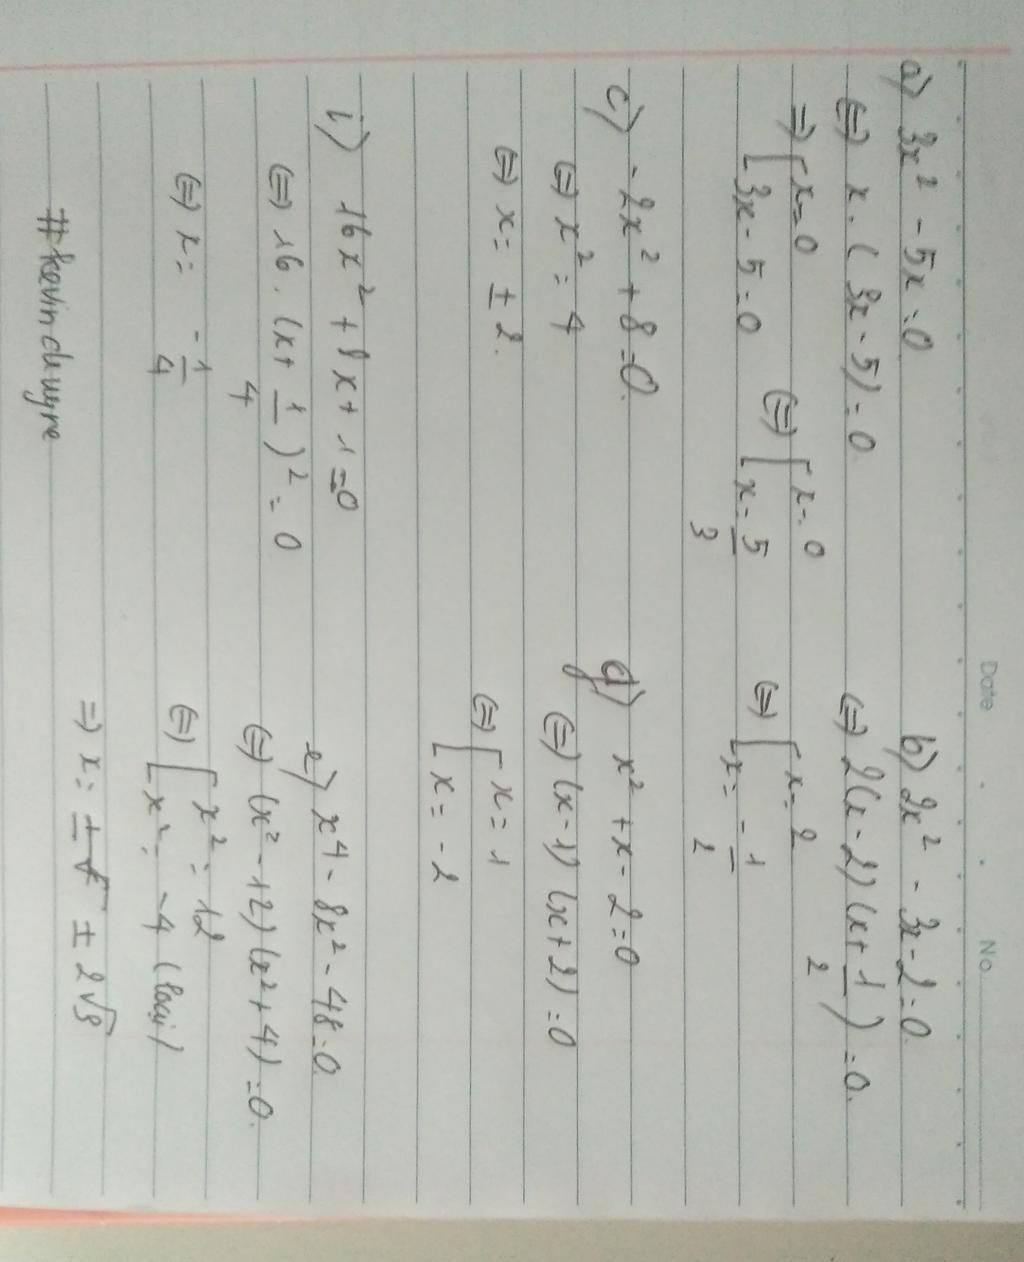 Date No.
a) 3x² - 5x = 0
⇔ x. (3x - 5) = 0
⇒ [ x = 0
3x - 5 = 0
⇔ [ x = 0
x = 5/3
b) 2x² - 3x - 2 = 0
⇔ 2(x - 2)(x + 1/2) = 0.
⇔ [ x = 2
x = -1/2
c) -2x² + 8 = 0.
⇔ x² = 4
⇔ x = ± 2.
d) x² + x - 2 = 0
⇔ (x - 1)(x + 2) = 0
⇔ [ x = 1
x = -2
i) 16x² + 8x + 1 = 0
⇔ 16. (x + 1/4)² = 0
⇔ x = -1/4
e) x⁴ - 8x² - 48 = 0.
⇔ (x² - 12)(x² + 4) = 0.
⇔ [ x² = 12
x² = -4 (loại)
⇒ x = ± 2√3